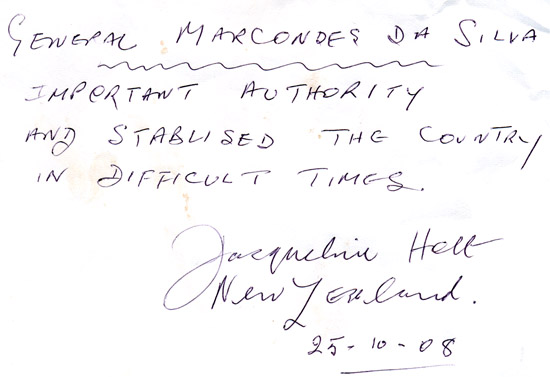 GENERAL MARCONDES DA SILVA
IMPORTANT AUTHORITY
AND STABLISED THE COUNTRY
IN DIFFICULT TIMES.
Jacqueline Holt
New Zealand.
25-10-08